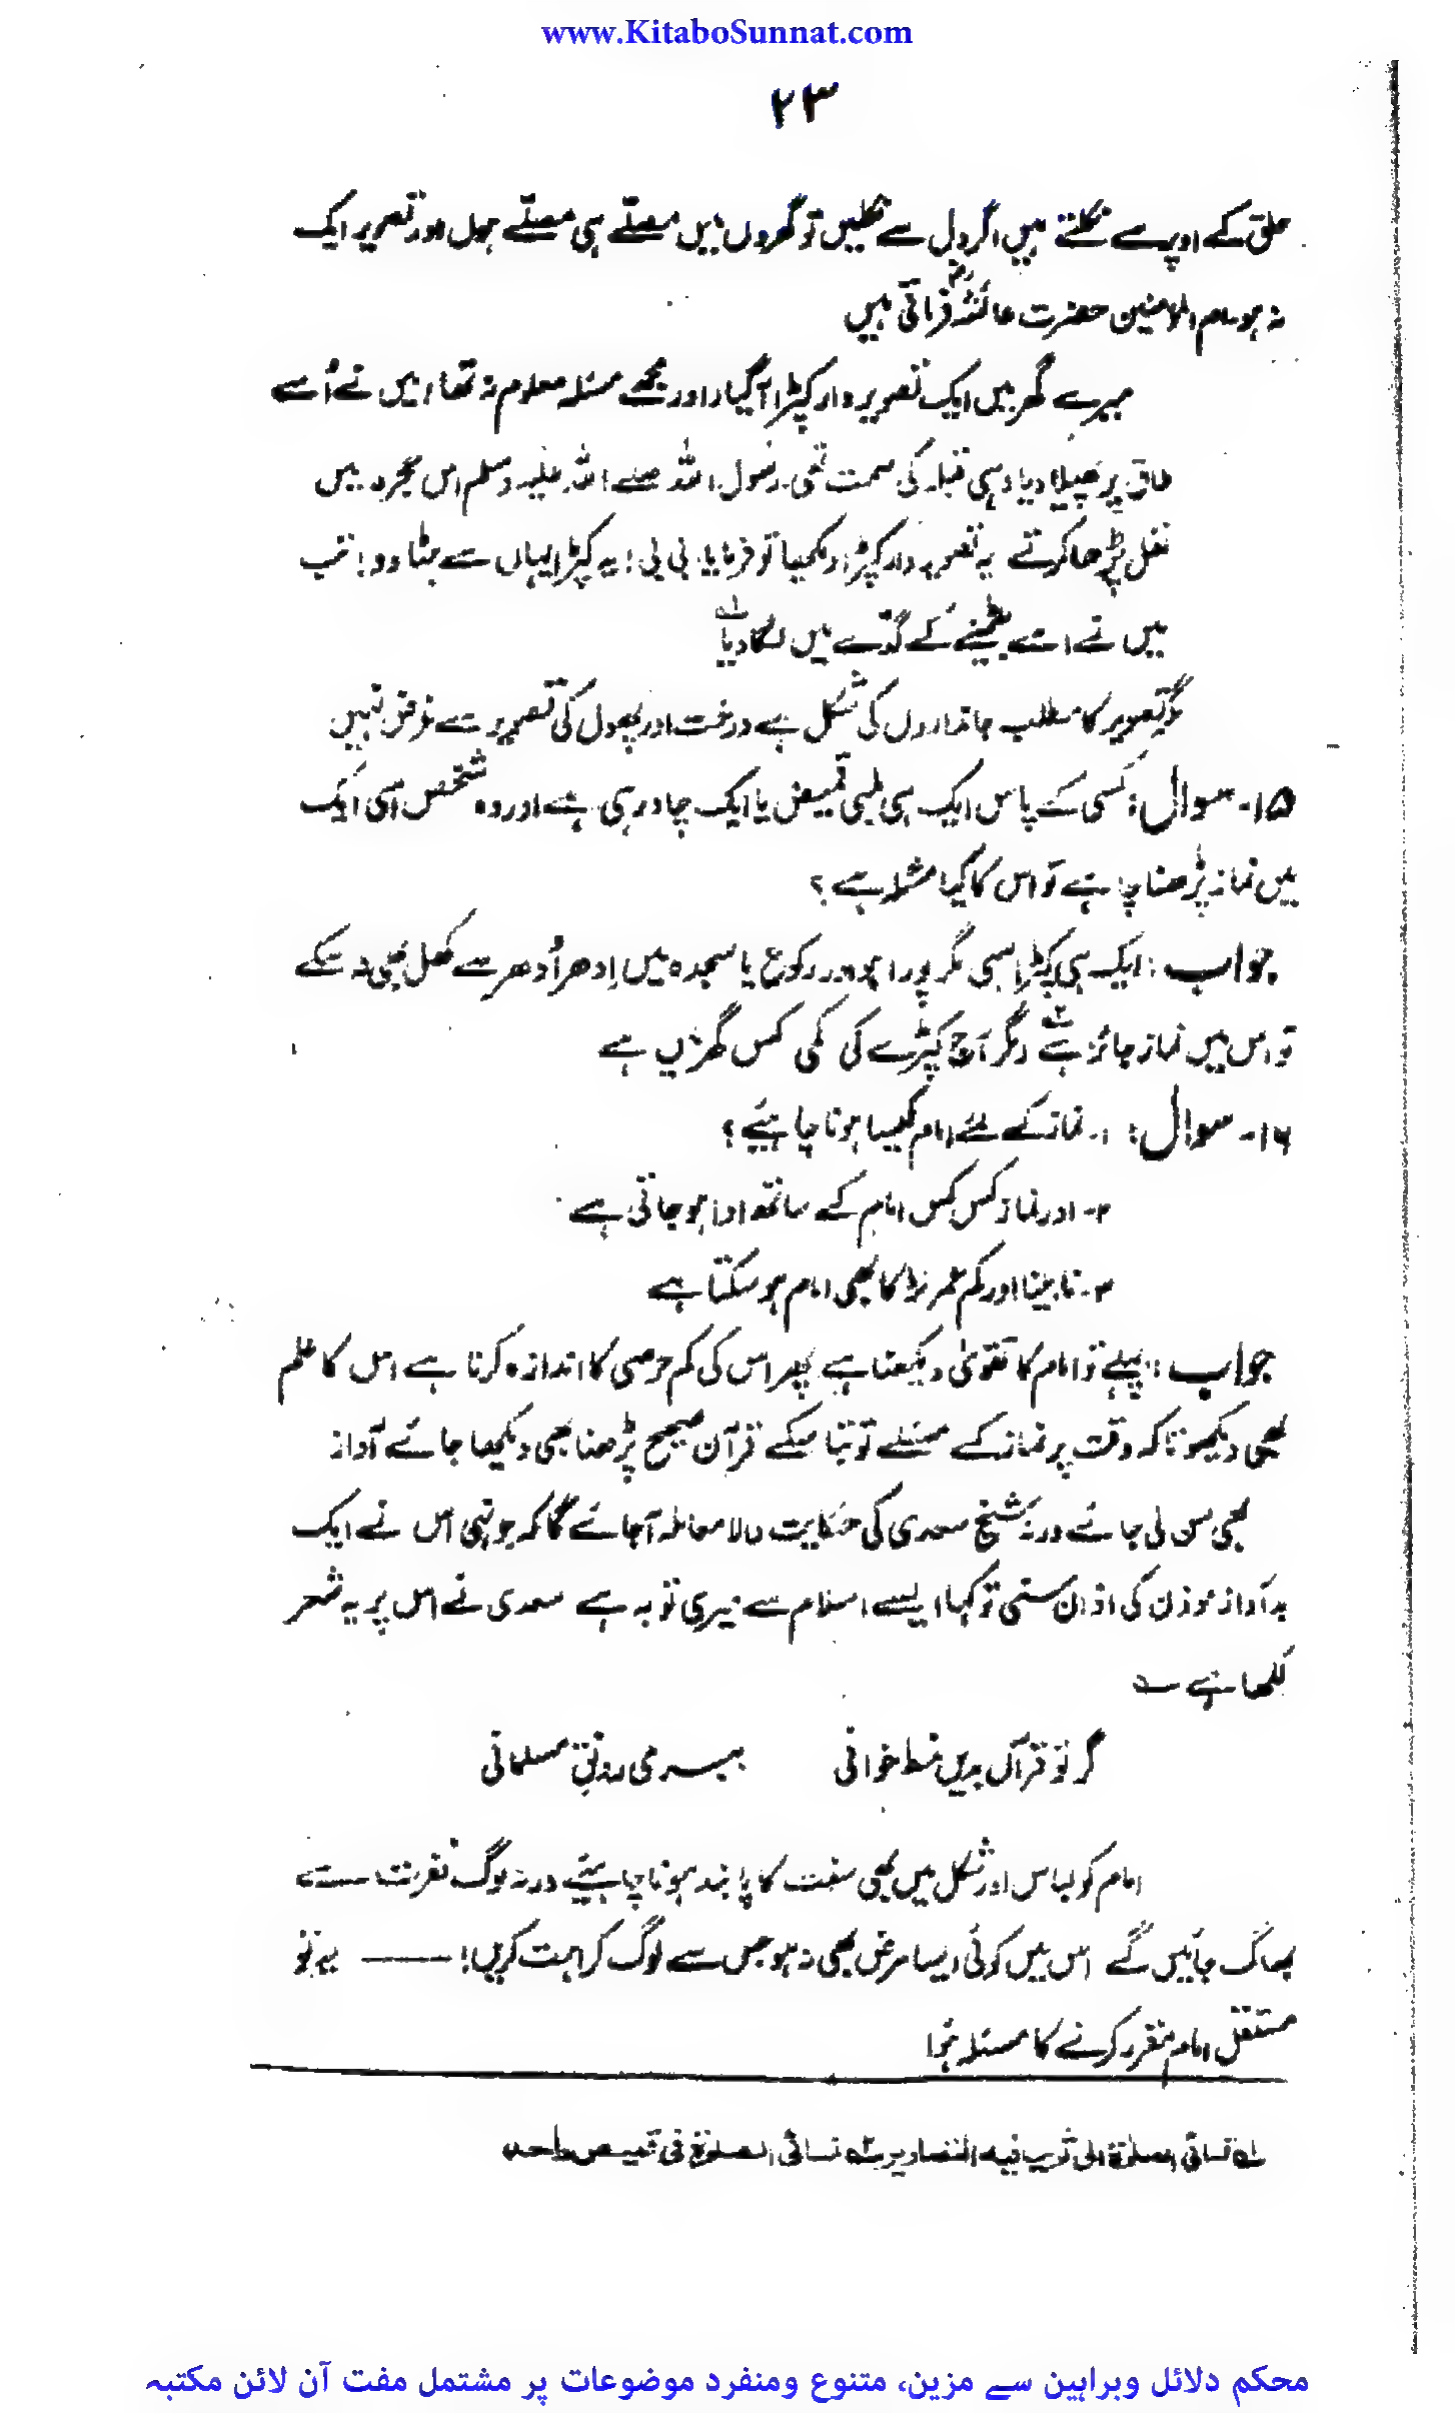 www.KitaboSunnat.com
۲۳
حلق کے اوپر سے نکلتے ہیں اگر دل سے نکلیں تو گھروں میں مصلّے ہی مصلّے ہوں اور تصویر ایک
نہ ہو۔ ام المومنین حضرت عائشہؓ فرماتی ہیں
میرے گھر میں ایک تصویر دار کپڑا آگیا (اور مجھے مسئلہ معلوم نہ تھا) میں نے اُسے
طاق پر پھیلا دیا وہی قبلہ کی سمت تھی۔ رسول اللہ صلے اللہ علیہ وسلم اس حجرہ میں
نفل پڑھا کرتے یہ تصویر دار کپڑا دیکھا تو فرمایا، بی بی! یہ کپڑا یہاں سے ہٹا دو! تب
میں نے اسے بیٹھنے کے گدّے میں لگا دیا؂۱
مگر تصویر کا مطلب جانداروں کی شکل ہے درخت اور پھول کی تصویر سے غرض نہیں
۱۵- سوال: کسی کے پاس ایک ہی لمبی قمیض یا ایک چادر ہی ہے اور وہ شخص اسی ایک
میں نماز پڑھنا چاہے تو اس کا کیا مسئلہ ہے؟
جواب: ایک ہی کپڑا سہی مگر پورا ہو اور رکوع یا سجدہ میں اِدھر اُدھر سے کھل بھی نہ سکے
تو اس میں نماز جائز ہے؂۲ (مگر آج کپڑے کی کمی کس گھر میں ہے
۱۶- سوال: ۱- نماز کے لئے امام کیسا ہونا چاہیئے؟
۲- اور نماز کس کس امام کے ساتھ ادا ہو جاتی ہے
۳- نابینا اور کم عمر لڑکا بھی امام ہو سکتا ہے
جواب: پہلے تو امام کا تقویٰ دیکھنا ہے پھر اس کی کم حرصی کا اندازہ کرنا ہے اس کا علم
بھی دیکھو تاکہ وقت پر نماز کے مسئلے تو بتا سکے قرآن صحیح پڑھنا بھی دیکھا جائے آواز
بھی سن لی جائے ورنہ شیخ سعدی کی حکایت والا معاملہ آجائے گا کہ جونہی اس نے ایک
بد آواز موذن کی اذان سنی تو کہا ایسے اسلام سے میری توبہ ہے سعدی نے اس پر یہ شعر
لکھا ہے ؎
گر تو قرآں بدیں نمط خوانی ببری رونق مسلمانی
امام کو لباس اور شکل میں بھی سنت کا پابند ہونا چاہیئے ورنہ لوگ نفرت سے
بھاگ جائیں گے اس میں کوئی ایسا مرض بھی نہ ہو جس سے لوگ کراہت کریں! —— یہ تو
مستقل امام مقرر کرنے کا مسئلہ ہُوا
؂۱ نسائی الصلوٰۃ الی ثوب فیہ التصاویر ؂۲ نسائی الصلوٰۃ فی قمیص واحد
محکم دلائل وبراہین سے مزین، متنوع ومنفرد موضوعات پر مشتمل مفت آن لائن مکتبہ